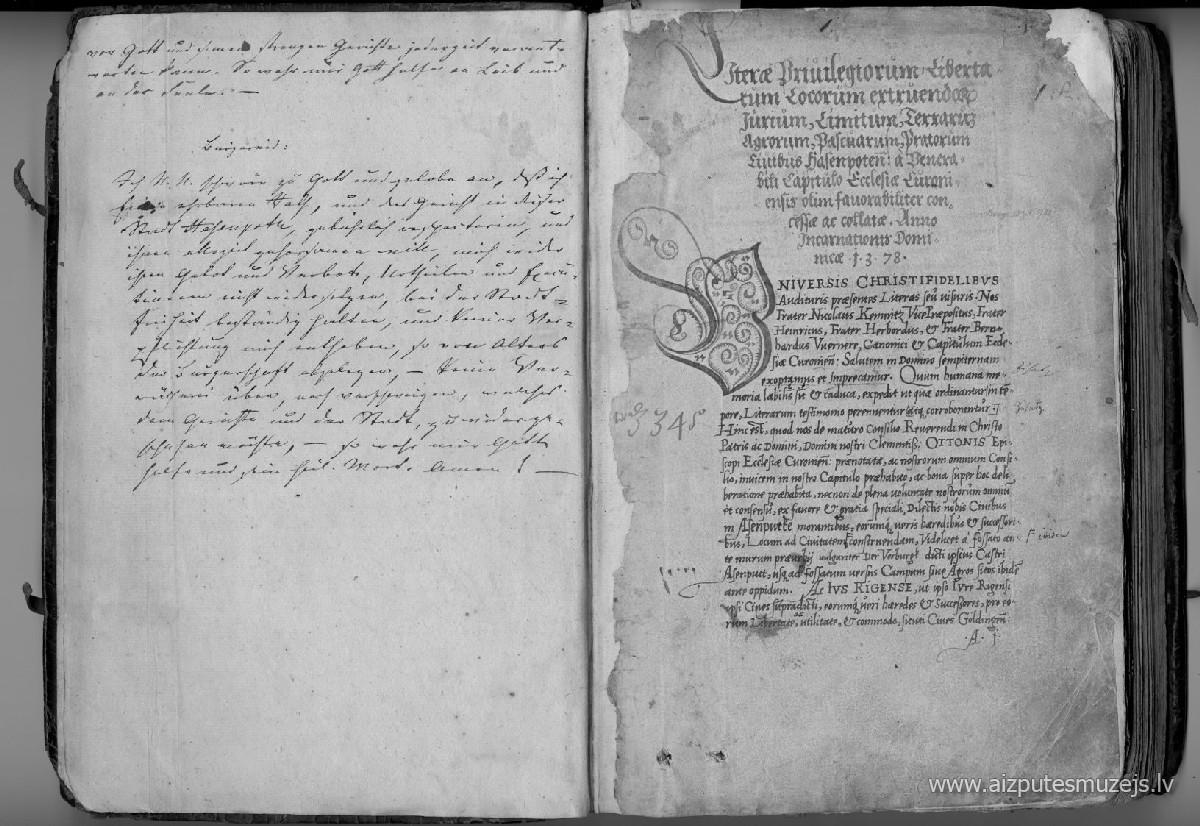 vor Gott und seinem strengen Gerichte jederzeit verant-
worten kann. So wahr mir Gott helfe an Leib und
an der Seele. —
Bürgereid:
Ich N. N. schwöre zu Gott und gelobe an, daß ich
ehrbaren Rath, und das Gericht in dieser
Stadt Hasenpoth, gebührlich respectiren, und
ihnen allezeit gehorsamen will, mich wider
ihren Gebot und Verbote, Urtheilen und Execu-
tionen nicht widersetzen, bei der Stadt-
Freiheit beständig halten, und keiner Ver-
pflichtung mich entheben, so von Alters
der Bürgerschaft obgelegen, — keine Ver-
rätherei üben noch verschweigen, welches
dem Gerichte und der Stadt, zuwider ge-
schehen möchte, — so wahr mir Gott
helfe und sein heil. Wort. Amen! —
1.
Literæ Priuilegiorum, Liberta
tum Locorum extruendor
Jurium, Limitum, Terraru
Agrorum, Pascuarum, Pratorum
Ciuibus Hasenpoten: à Venera-
bili Capitulo Ecclesiæ Curoni-
ensis olim fauorabiliter con-
cessæ ac collatæ. Anno
Incarnationis Domi-
nicæ 1.3.78.
VNIVERSIS CHRISTIFIDELIBVS
Audituris præsentes Literas seu uisuris. Nos
Frater Nicolaus Kemnitz VicePræpositus, Frater
Heinricus, Frater Herbordus, & Frater Bern-
hardus Vuernere, Canonici & Capitulum Eccle-
siæ Curoneñ: Salutem in Domino sempiternam
exoptamus et Imprecamur. Quum humana me-
moria labilis sit & caduca, expedit ut quæ ordinantur in tē-
pore, Literarum testimonio perennentur corroborentur
Hinc est, quod nos de maturo Consilio Reuerendi in Christo
Patris ac Domini, Domini nostri Clementiss: OTTONIS Epi-
scopi Ecclesiæ Curoneñ: prænotatæ, ac nostrorum omnium Consi-
lio, inuicem in nostro Capitulo præhabito, ac bona super hoc deli
beratione præhabita, necnon de plena uoluntate nostrorum omniū
et consensu, ex fauore & gratia speciali, Dilectis nobis Ciuibus
in Asenputte morantibus, eorumq ueris hæredibus & successori-
bus, Locum ad Ciuitatem construendam, Videlicet à fossato an-
te murum uulgariter Der Vorburgk dicti ipsius Castri
Asenputt, usq ad Fossatum uersus Campum siue Agros sitos ibidē
ante oppidum. Ac IVS RIGENSE, ut ipso Iure Rigensi
ipsi Ciues supradicti, eorumq ueri hæredes & Successores, pro eo-
rum Libertate, utilitate, & commodo, sicuti Ciues Goldingeñ
A j
3345
www.aizputesmuzejs.lv